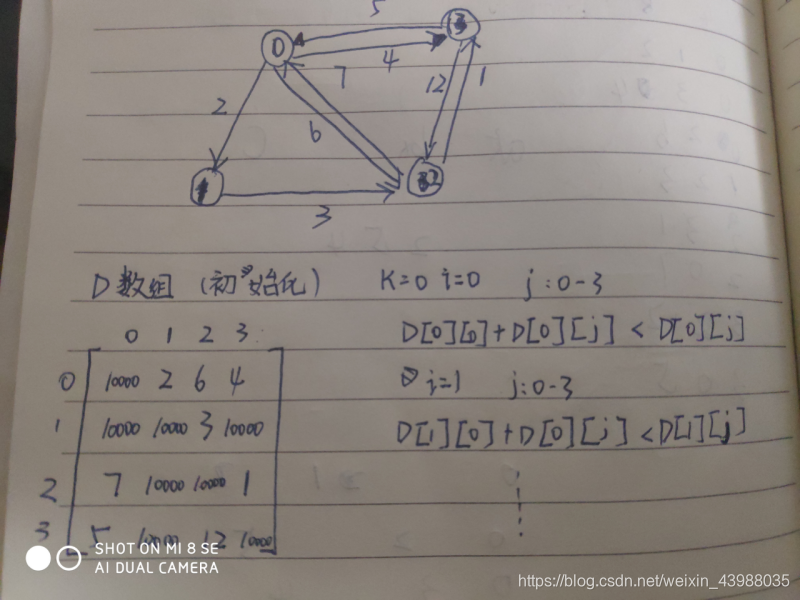 5
0
3
7
4
12
1
2
6
1
2
3
D数组 (初始化)
K=0 i=0 j:0-3
0 1 2 3
D[0][0]+D[0][j] < D[0][j]
0 10000 2 6 4
i=1 j:0-3
1 10000 10000 3 10000
D[1][0]+D[0][j] <D[1][j]
2 7 10000 10000 1
3 5 10000 12 10000
SHOT ON MI 8 SE
AI DUAL CAMERA
https://blog.csdn.net/weixin_43988035